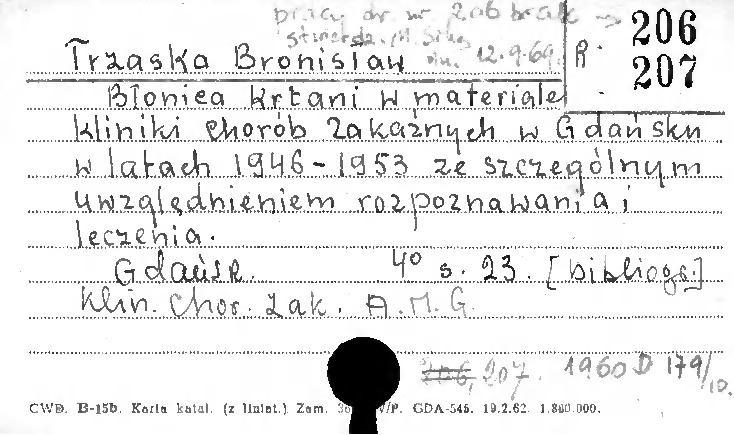 pracy dr. nr 206 brak →
stwierdz. M. dn. 12.9.69.
Trzaska Bronisław
R. 206
207
Błonica krtani w materiale
kliniki chorób zakaźnych w Gdańsku
w latach 1946-1953 ze szczególnym
uwzględnieniem rozpoznawania i
leczenia.
Gdańsk. 4° s. 23. [bibliogr.]
Klin. Chor. Zak. A.M.G.
206, 207. 1960 D 179/10.
CWD. B-15b. Karta katal. (z liniat.) Zam. V/P. GDA-545. 19.2.62. 1.860.000.